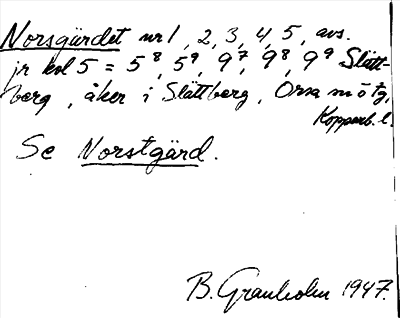 Norsgärdet nr 1, 2, 3, 4, 5, avs.
jr kol 5 = 5⁸, 5⁹, 9⁷, 9⁸, 9⁹ Slätt-
berg, åker i Slättberg, Orsa
Kopparb. l.
Se Norstgärd.
B. Granholm 1947.